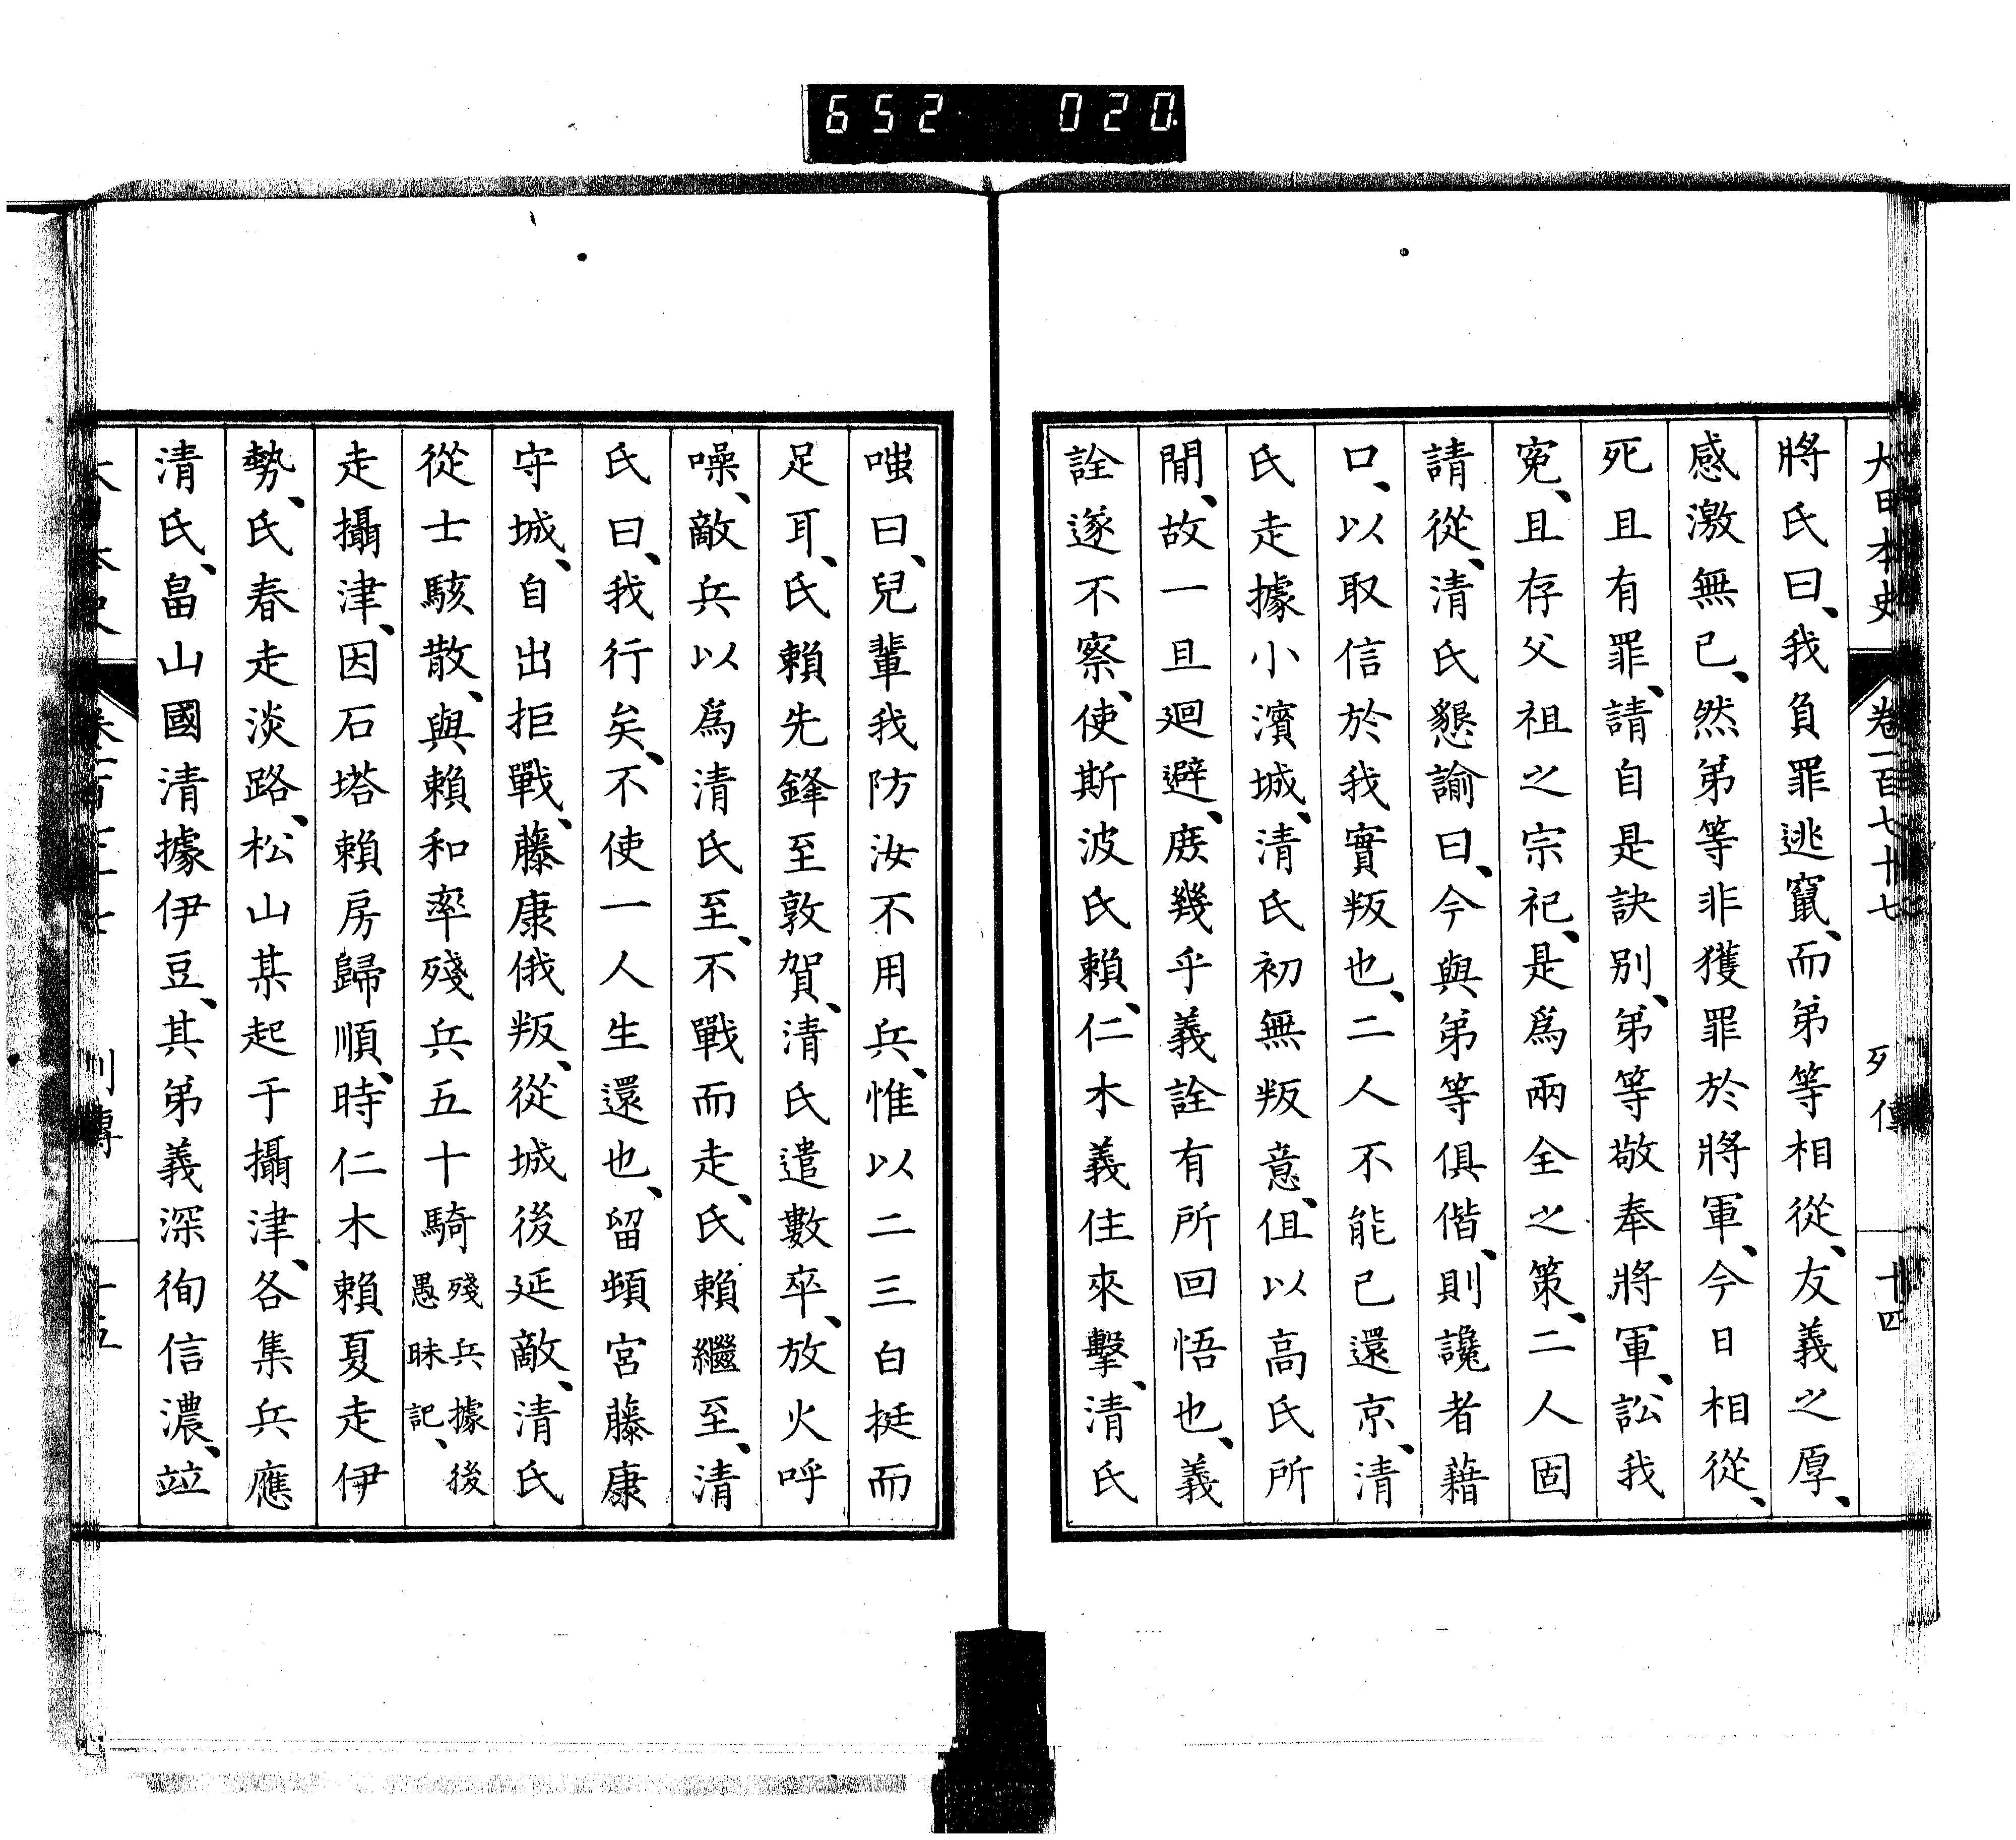 652 020
大日本史 卷一百七十七 列傳 十四
將氏曰、我負罪逃竄、而弟等相從、友義之厚、
感激無已、然弟等非獲罪於將軍、今日相從、
死且有罪、請自是訣別、弟等敬奉將軍、訟我
冤、且存父祖之宗祀、是爲兩全之策、二人固
請從、清氏懇諭曰、今與弟等俱偕、則讒者藉
口、以取信於我實叛也、二人不能已還京、清
氏走據小濱城、清氏初無叛意、伹以高氏所
閒、故一旦廻避、庶幾乎義詮有所回悟也、義
詮遂不察、使斯波氏賴、仁木義住來擊、清氏
嗤曰、兒輩我防汝不用兵、惟以二三白挺而
足耳、氏賴先鋒至敦賀、清氏遣數卒、放火呼
噪、敵兵以爲清氏至、不戰而走、氏賴繼至、清
氏曰、我行矣、不使一人生還也、留頓宮藤康
守城、自出拒戰、藤康俄叛、從城後延敵、清氏
從士駭散、與賴和率殘兵五十騎殘兵據後愚昧記、
走攝津、因石塔賴房歸順、時仁木賴夏走伊
勢、氏春走淡路、松山某起于攝津、各集兵應
清氏、畠山國清據伊豆、其弟義深徇信濃、竝
列傳